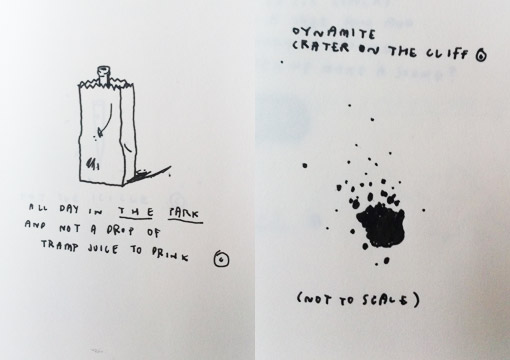 ALL DAY IN THE PARK
AND NOT A DROP OF
TRAMP JUICE TO DRINK
DYNAMITE
CRATER ON THE CLIFF
(NOT TO SCALE)